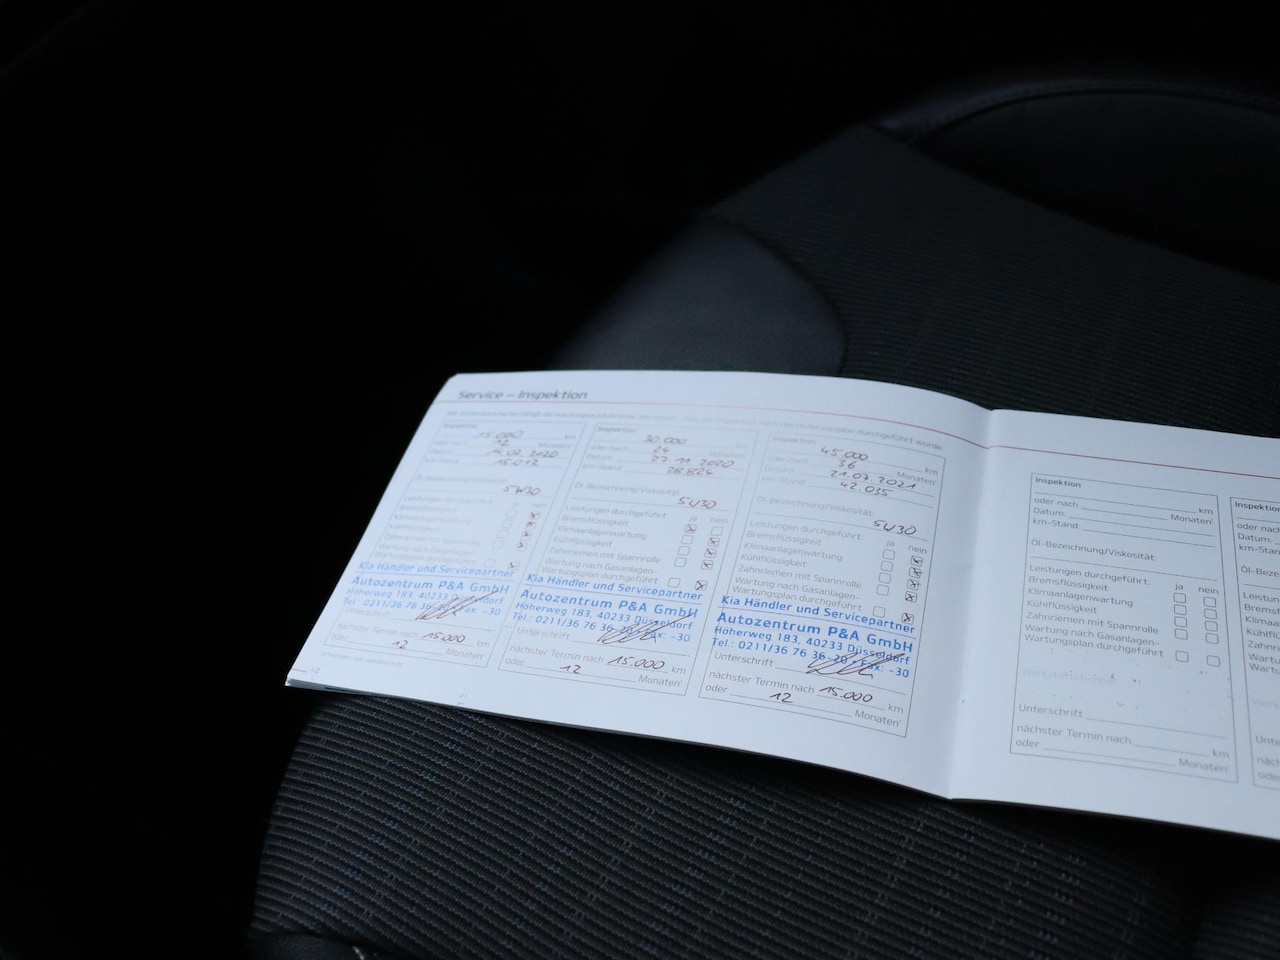 Service – Inspektion
Inspektion
15.000 km
12 Monaten
Datum: 14.02.2020
km-Stand: 15.012
5W30
Kia Händler und Servicepartner
Autozentrum P&A GmbH
Höherweg 183, 40233 Düsseldorf
Tel.: 0211/36 76 36-20 Fax: -30
Unterschrift
nächster Termin nach 15.000 km
oder 12 Monaten¹
Inspektion
30.000
oder nach 24 Monaten¹
Datum: 27.11.2020
km-Stand: 28.824
Öl-Bezeichnung/Viskosität:
5W30
Leistungen durchgeführt ja nein
Bremsflüssigkeit
Klimaanlagenwartung
Kühlflüssigkeit
Zahnriemen mit Spannrolle
Wartung nach Gasanlagen-
Wartungsplan durchgeführt
Kia Händler und Servicepartner
Autozentrum P&A GmbH
Höherweg 183, 40233 Düsseldorf
Tel.: 0211/36 76 36-20 Fax: -30
Unterschrift
nächster Termin nach 15.000 km
oder 12 Monaten¹
Inspektion
45.000 km
oder nach 36 Monaten¹
Datum: 21.07.2021
km-Stand: 42.035
Öl-Bezeichnung/Viskosität:
5W30
Leistungen durchgeführt ja nein
Bremsflüssigkeit
Klimaanlagenwartung
Kühlflüssigkeit
Zahnriemen mit Spannrolle
Wartung nach Gasanlagen-
Wartungsplan durchgeführt
Kia Händler und Servicepartner
Autozentrum P&A GmbH
Höherweg 183, 40233 Düsseldorf
Tel.: 0211/36 76 36-20 Fax: -30
Unterschrift
nächster Termin nach 15.000 km
oder 12 Monaten¹
14
Inspektion
km
oder nach Monaten¹
Datum:
km-Stand:
Öl-Bezeichnung/Viskosität:
Leistungen durchgeführt: ja nein
Bremsflüssigkeit
Klimaanlagenwartung
Kühlflüssigkeit
Zahnriemen mit Spannrolle
Wartung nach Gasanlagen-
Wartungsplan durchgeführt
Unterschrift
nächster Termin nach km
oder Monaten¹
Inspektion
oder nach
Datum: